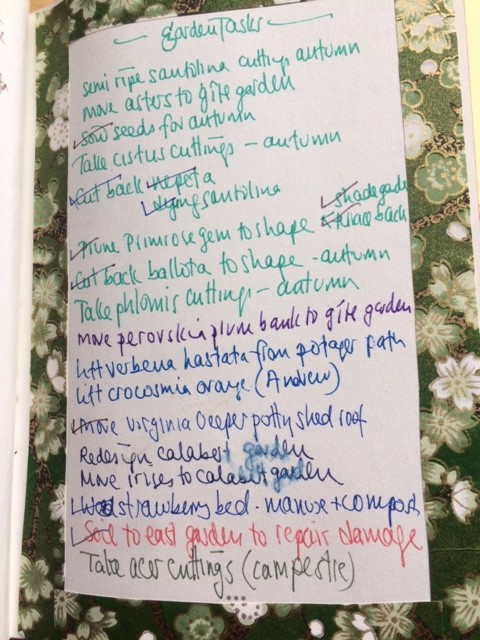 Garden Tasks
semi ripe santolina cuttings autumn
move asters to gîte garden
sow seeds for autumn
Take cistus cuttings - autumn
Cut back nepeta
santolina
shade garde
Prune Primrose gem to shape
back
Cut back ballota to shape - autumn
Take phlomis cuttings - autumn
Move perovskia plum bank to gîte garden
lift verbena hastata from potager path
lift crocosmia orange (Andrew)
Move Virginia Creeper potty shed roof
Redesign calabert garden
Move irises to calabert garden
Weed strawberry bed. manure + compost
Soil to east garden to repair damage
Take acer cuttings (campestre)